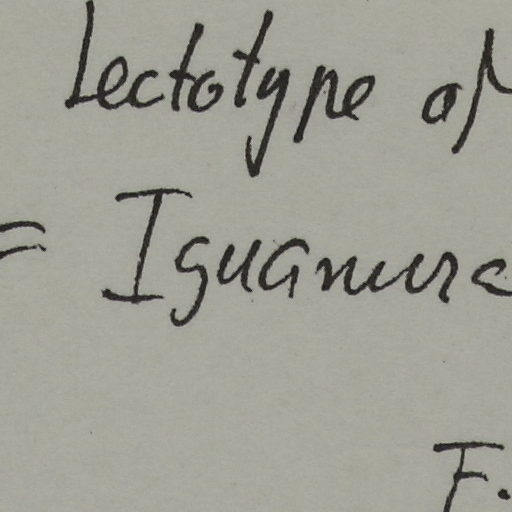 Lectotype of
= Iguanura
F.